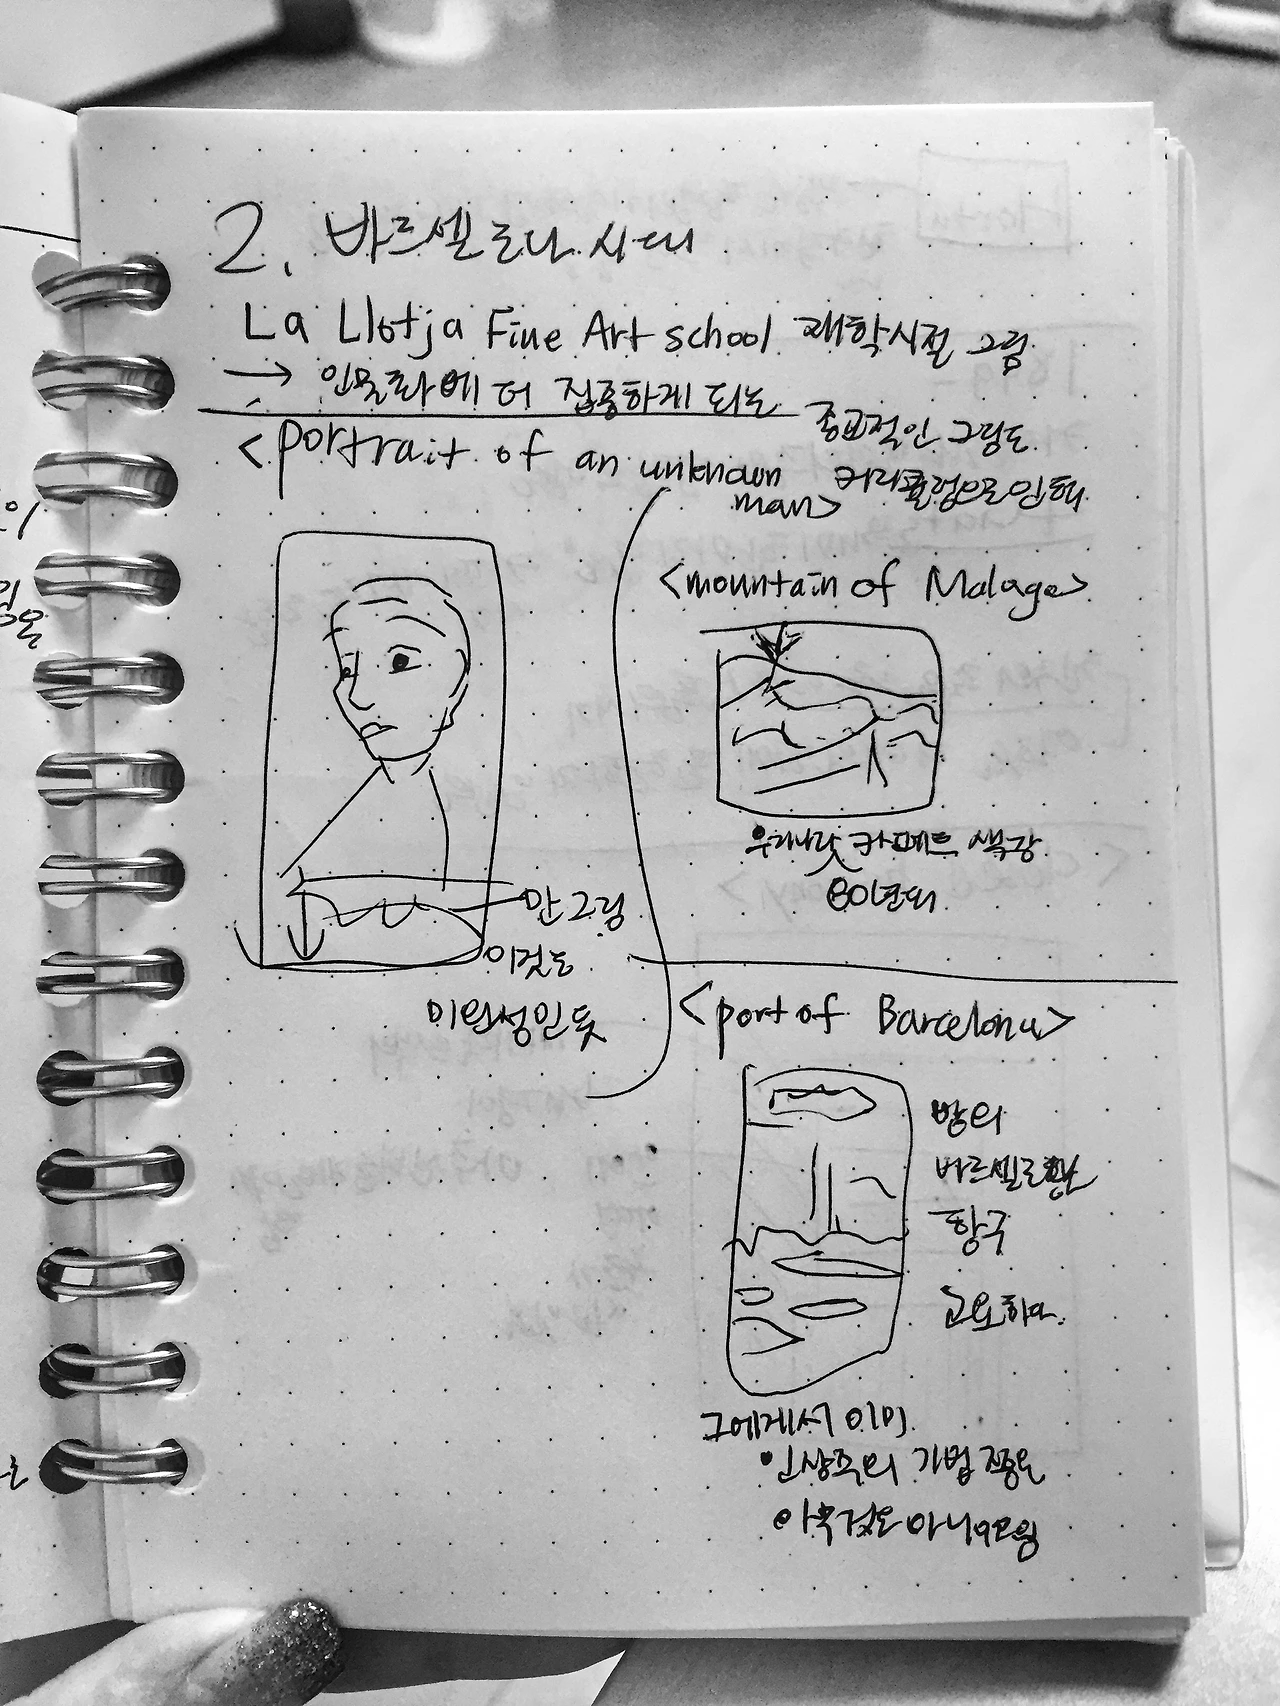 2. 바르셀로나 시대
La Llotja Fine Art school 재학시절 그림
→ 인물화에 더 집중하게 되는
종교적인 그림도
커리큘럼으로 인해
<portrait of an unknown
man>
안그림
이것도
미완성인 듯
<mountain of Malaga>
우리나랏 카페트 색감
80년대
<port of Barcelona>
밤의
바르셀로나
항구
고요하다.
그에게서 이미
인상주의 기법 정도
아무것도 아니였음